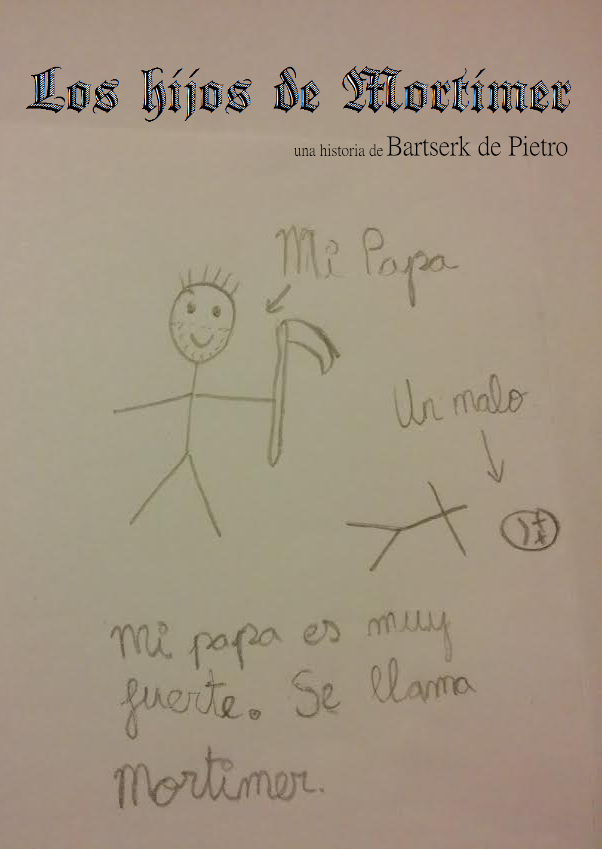 Los hijos de Mortimer
una historia de Bartserk de Pietro
Mi Papa
Un malo
Mi papa es muy
fuerte. Se llama
Mortimer.